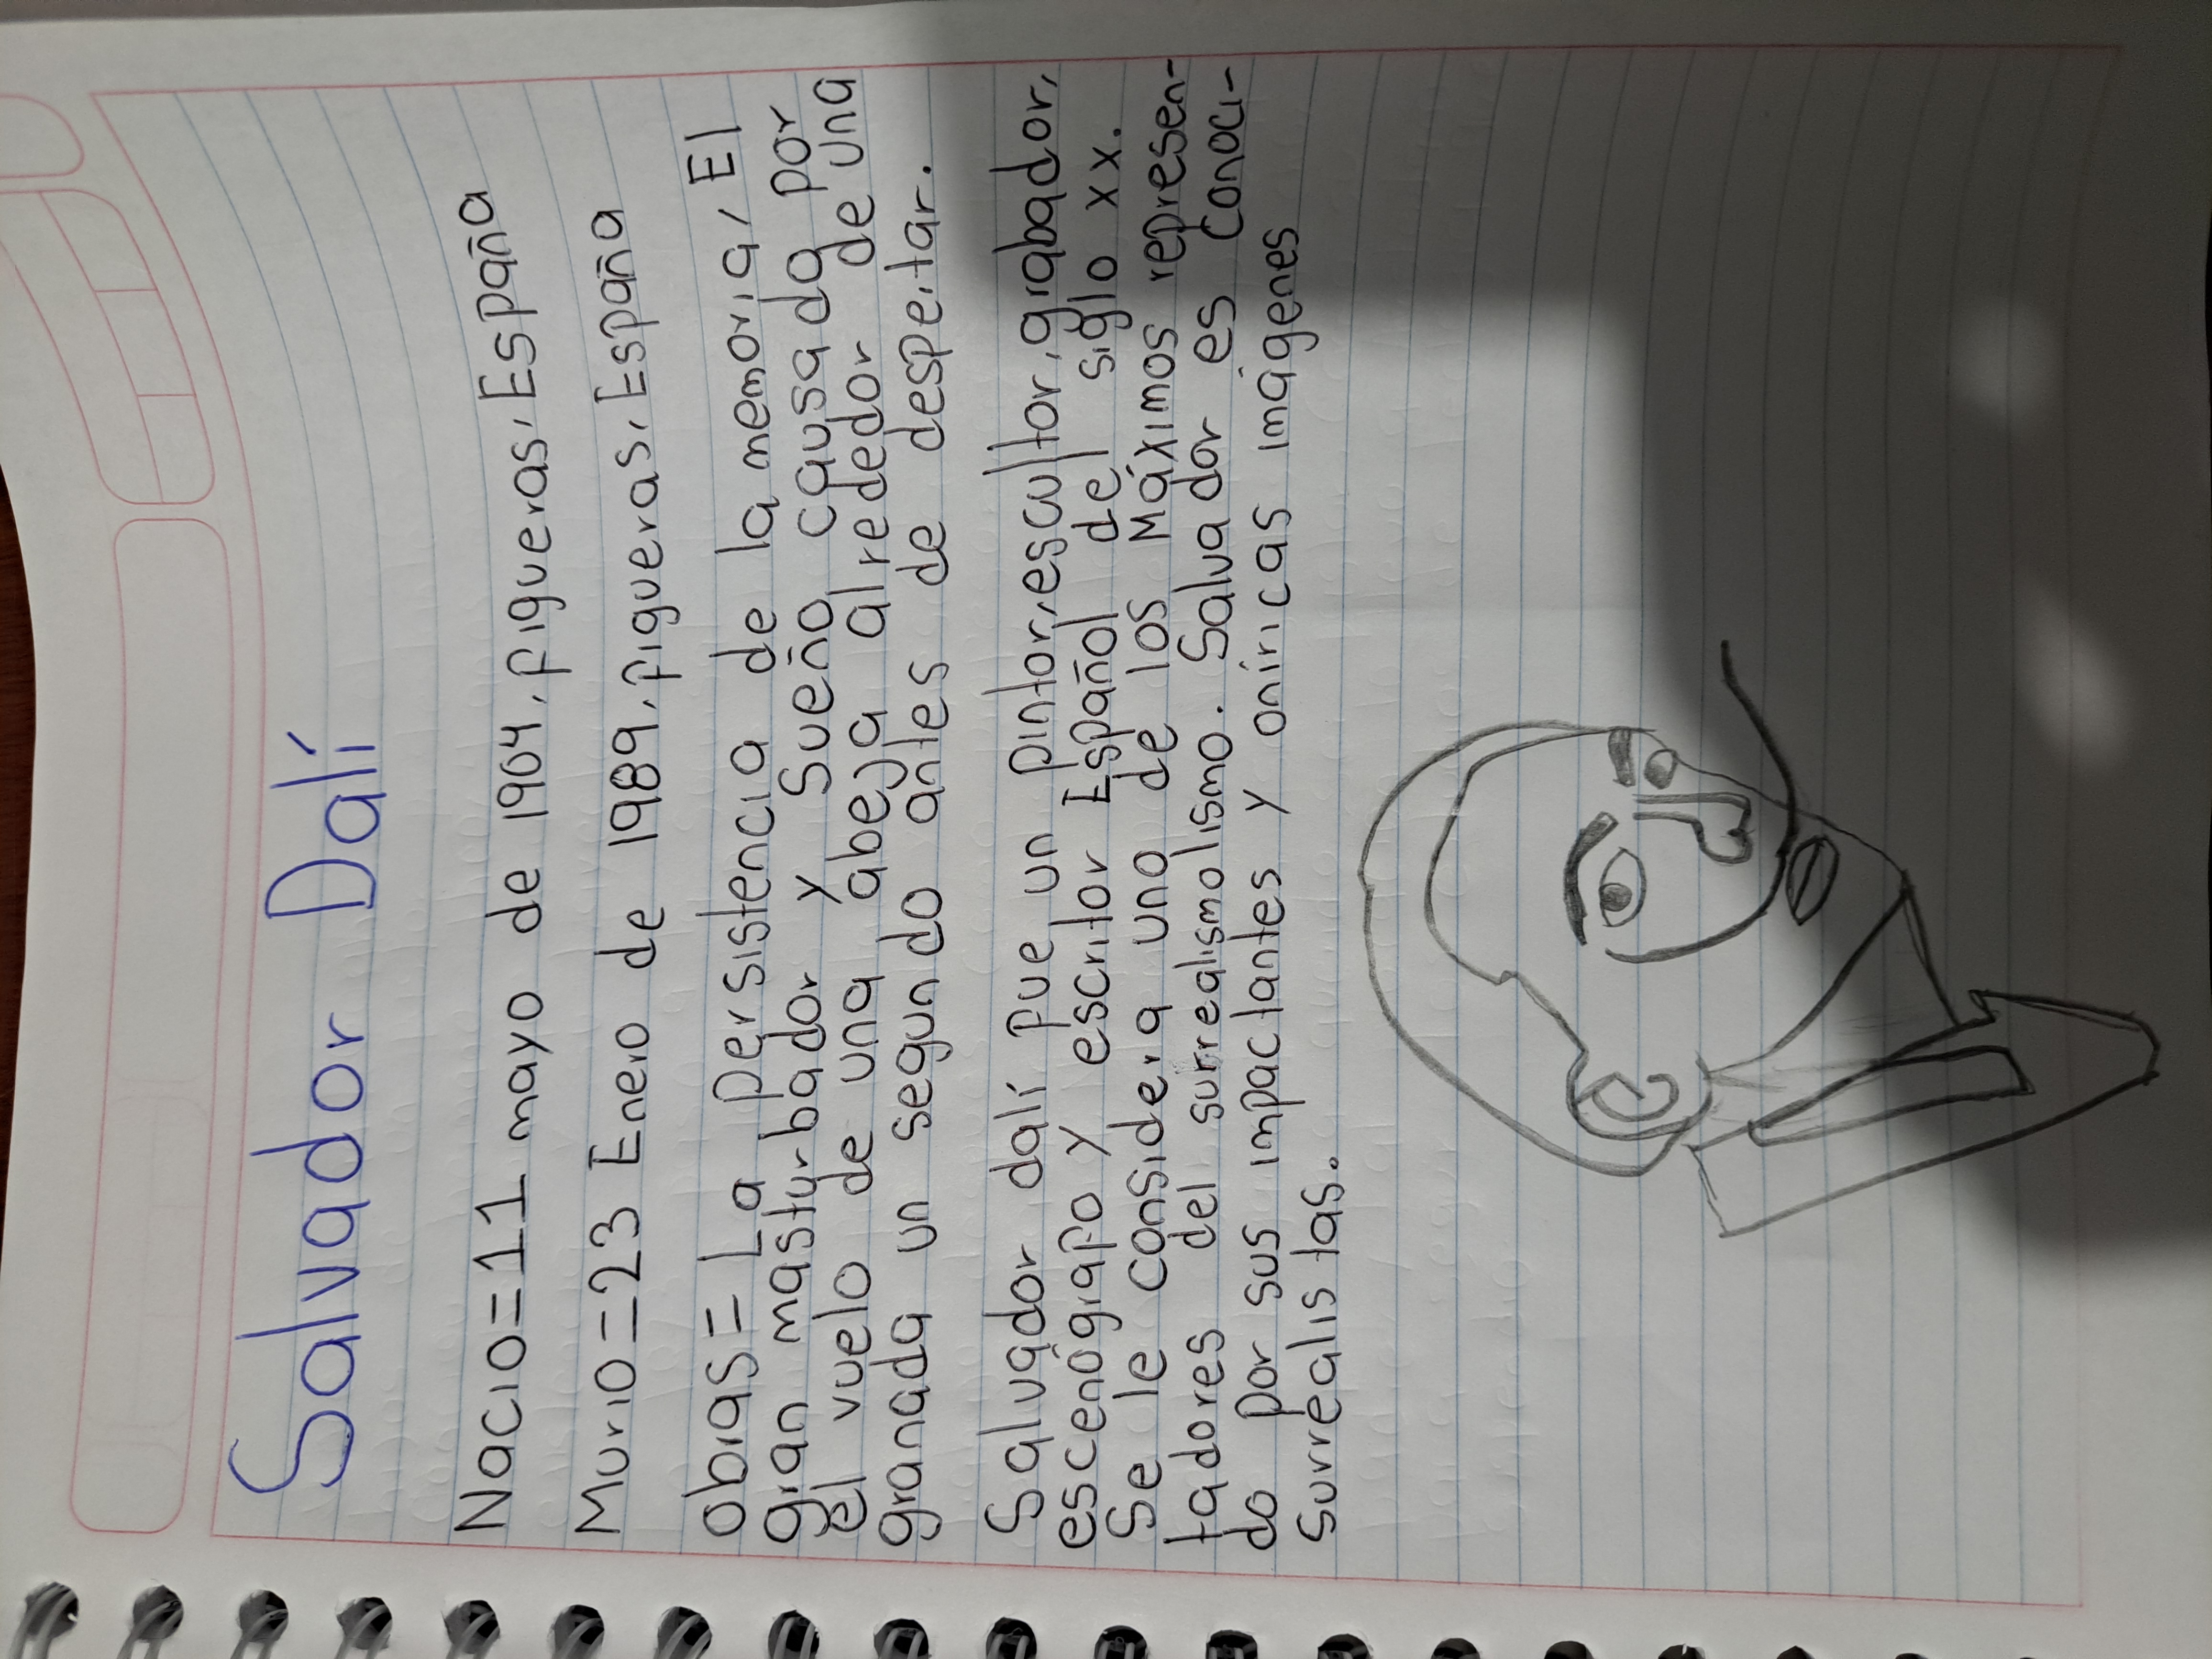 Salvador Dalí
Nacio=11 mayo de 1904, Figueras, España
Murio=23 Enero de 1989, Figueras, España
obras= La persistencia de la memoria, El
gran masturbador y Sueño causada por
el vuelo de una abeja alrededor de una
granada un segundo antes de despertar.
Salvador dalí fue un pintor, escultor, grabador,
escenógrafo y escritor Español del siglo xx.
Se le considera uno de los Máximos represen-
tadores del surrealismolismo. Salvador es conoci-
do por sus impactantes y oníricas imágenes
surrealistas.